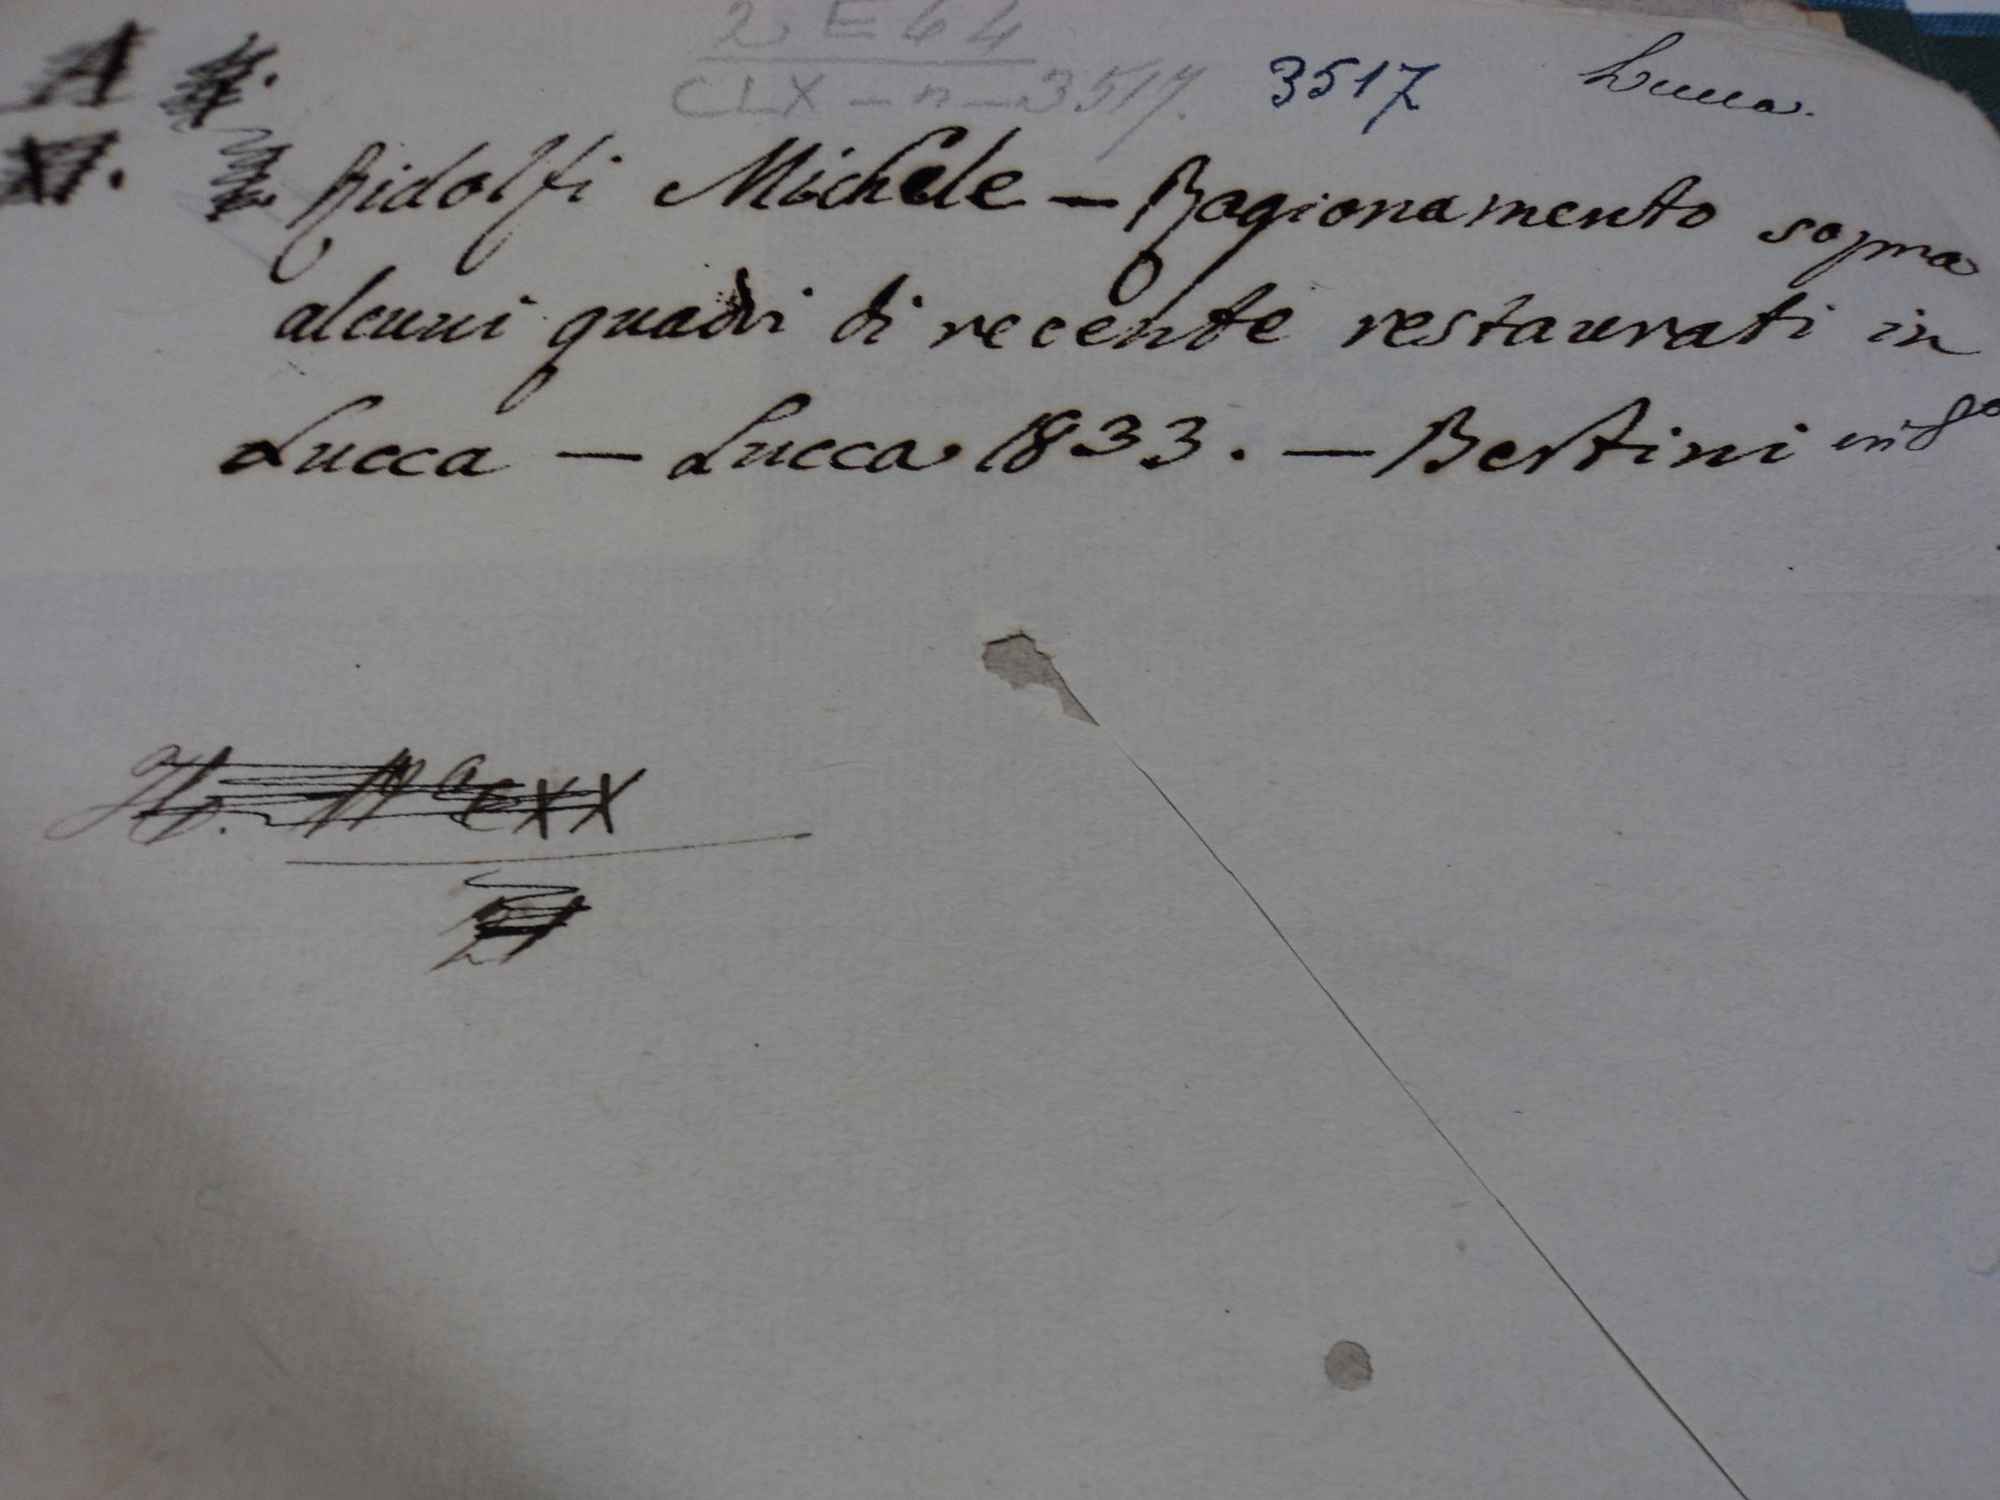 2 E 64
CLX - n - 3517. 3517 Lucca.
A
XI.
Ridolfi Michele - Ragionamento sopra
alcuni quadri di recente restaurati in
Lucca - Lucca 1833. - Bertini in 8º
CXX